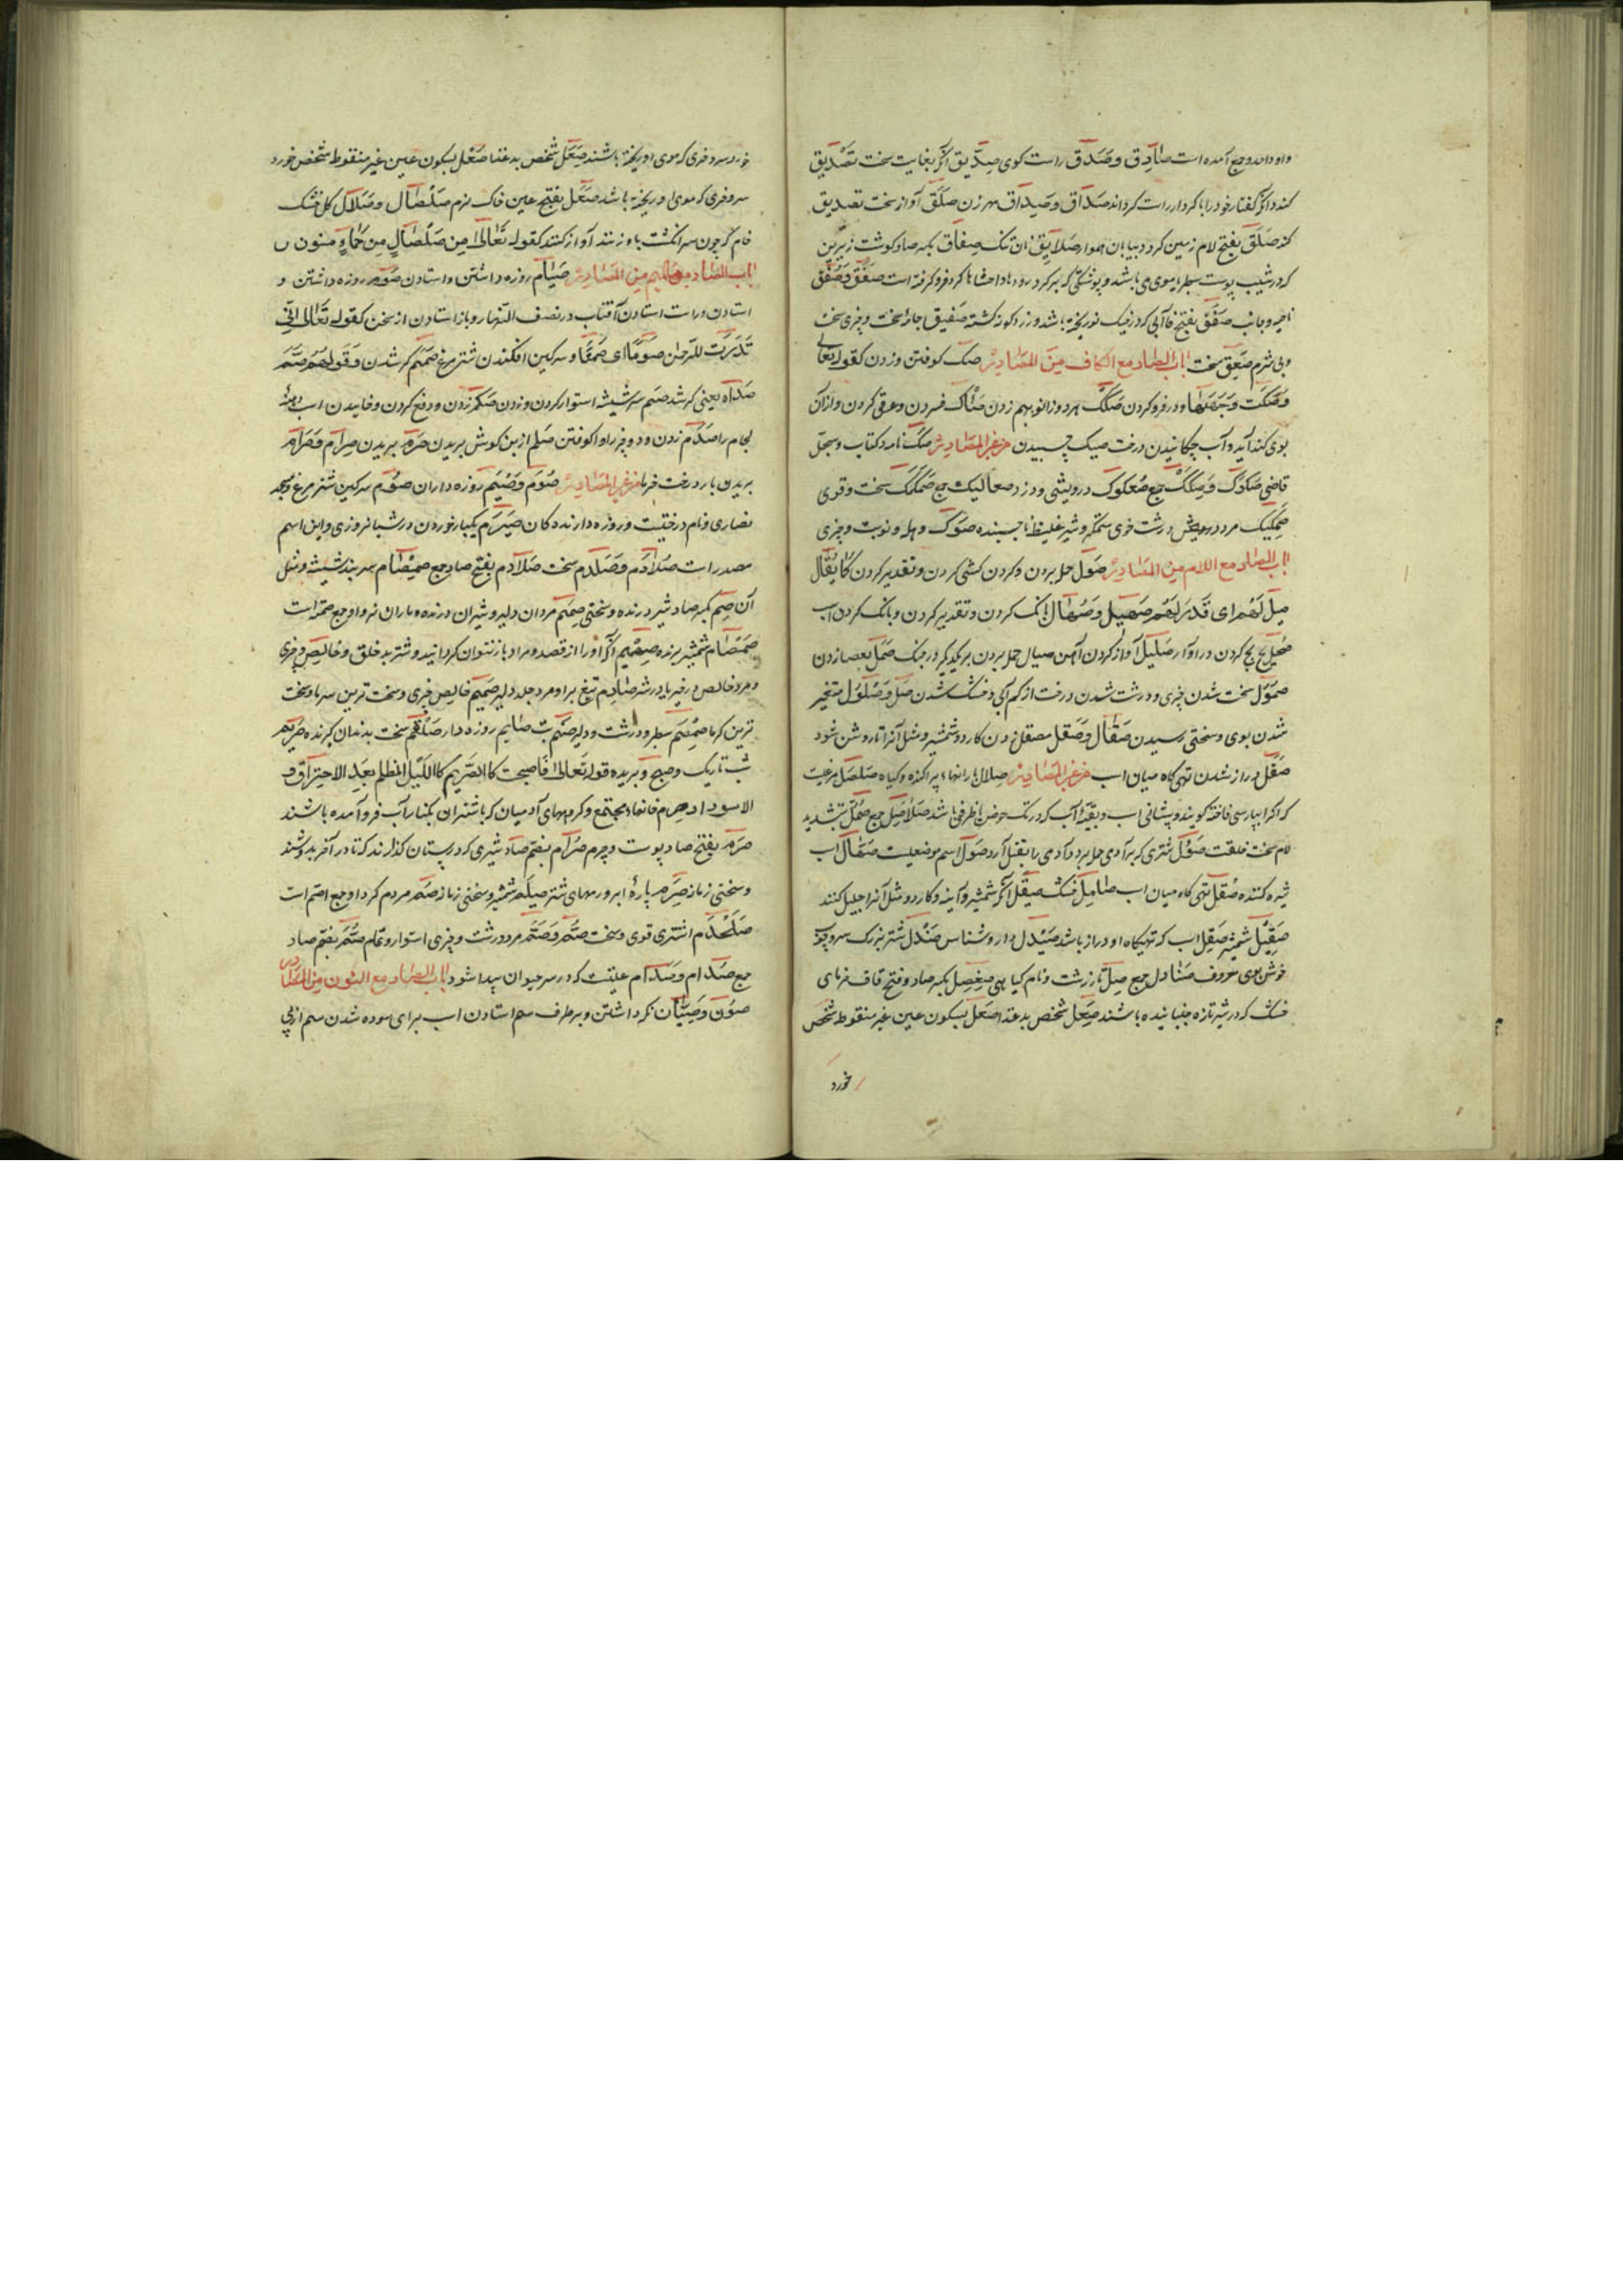 واو واحد و جمع آمده است صَادِق و صَدَق راست کوی صِدِّیق آنکه بغایت سخت تَصْدِیق
کند و آنکه کفتار خود را با کردار راست کرداند صَدَاق و صِدَاق مهر زن صَلَق آواز سخت تصدیق
کند صَلَق بفتح لام زمین کرد و بیابان هموار صَلَایِق نان تنک صِفَاق بکسر صاد کوشت زیرین
که در شیب پوست سطبر با موی می باشد و پوششکی که بر کرد روده‌ها و احشاها کرد فرو کرفته است صَفْق و صُفْق
ناحیه و جانب صَفَق بفتح فا آبی که در خیک نو ریخته باشند و زرد کونه کشته صَفِیق جامهٔ سخت و چیزی سخت
و بی شرم صَعِق سخت باب الصاد مع الکاف مِنَ المَصَادِر صکّ کوفتن و زدن کقوله تعالی
فَصَکَّت وَجْهَهَا و در فرو کردن صَکَک هر دو زانو بهم زدن صَئَاک فسردن و عرق کردن و از آن
بوی کند آید و آب چکانیدن درخت صیک چسبیدن من غیر المصادر صَکّ نامه و کتاب و سجل
قاضی صُکُوک و صِکَاک جمع صُعْلُوک درویشی و دزد صعالیک جمع صَمَکَک سخت و قوی
صَمَکِیک مرد درویش درشت خوی ستمکر و شیر غلیظ ناچسبنده صَوک وهله و نوبت و چیزی
باب الصاد مع اللام مِن المَصَادِر صَوْل حمله بردن و کردن کشی کردن و تقدیر کردن کَمَا یُقَال
صِیلَ لَهُم ای قُدِّرَ لَهُم صَهِیل و صُهَال بانک کردن و تقدیر کردن و بانک کردن اسب
صَحَل بح بح کردن در آواز صَلِیل آواز کردن آهن صیال حمله بردن بر یکدیکر در جنک صَمل بعصا زدن
صُمُول سخت شدن چیزی و درشت شدن درخت از کم آبی و خشک شدن صَلّ و صُلُول متغیر
شدن بوی و سختی رسیدن صِقَال و صَقْل مصقل زدن کارد و شمشیر و مثل آنرا تا روشن شود
صَقَل دراز شدن تهی کاه میان اسب من غیر المَصَادِر صِلال بارانهاء پراکنده و کیاه صُلْصُل مرغیست
که آنرا بپارسی فاخته کویند و پیشانی اسب و بقیهٔ آب که در تک حوض یا ظرفی باشد صَلَاصِل جمع صُمُلّ بتشدید
لام سخت خلقت صَؤُل شتری که بر آدمی حمله برد و آدمی را بقتل آرد صَوَل اسم موضعیست صَهَّال اسب
شیهه کننده صُقْل تهی کاه میان اسب صَامِل خشک صَیْقَل آنکه شمشیر و آینه و کارد و مثل آنرا جلیل کنند
صَقِیل شمشیر صَقِل اسب که تهیکاه او دراز باشد صَیْدَل دارو شناس صَنْدَل شتر بزرک سر و چوب
خوش بوی معروف صَنَادِل جمع صِلّ مار زشت و نام کیاهی صِعْصِل بکسر صاد و فتح قاف خرمای
خشک که در شیر تازه جنبانیده باشند صَعِل شخص بدغذا صَعْل بسکون عین غیر منقوط شخص
خورد
خورد سر و خری که موی او ریخته باشند صَعِل شخص بدغذا صَعْل بسکون عین غیر منقوط شخص خورد
سر و خری که موی او ریخته باشد صَعَل بفتح عین خاک نرم صَلْصَال و صَلَّال کل خشک
خام که چون سر انکشت باو زنند آواز کند کقوله تَعَالیٰ مِن صَلْصَالٍ مِن حَمَاءٍ مسنون
باب الصاد مع المیم مِن المَصَادِر صِیَام روزه داشتن و استادن صَوْم روزه داشتن و
استادن و راست استادن آفتاب در نصف النهار و باز استادن از سخن کقوله تَعَالیٰ انّی
نَذَرْتُ للرَّحمٰن صوْمًا ای صَمْتًا و سرکین افکندن شتر مرغ صَمَم کر شدن و قولهم صَمَّ
صَدَاه یعنی کر شد صَمّ سر شیشه استوار کردن و زدن صَکْم زدن و دفع کردن و خاییدن اسب دهنهٔ
لجام را صَدْم زدن و دو چیز را واکوفتن صَلْم از بن کوش بریدن صَرْم بریدن صِرَام و صَرَام
بریدن بار درخت خرما من غیر المَصَادِر صُوَّم و صُیَّم روزه داران صَوْم سرکین شتر مرغ و مسجد
نصاری و نام درختیست و روزه دارنده کان صَیْرَم یکبار خوردن در شبانروزی و این اسم
مصدر است صُلَادِم و صَلْدَم سخت صَلَادِم بفتح صاد جمع صِمَام سر بند شیشه و مثل
آن صِمَّ بکسر صاد شیر درنده و سختی صِمَم مردان دلیر و شیران درنده و ماران نر و او جمع صمّه است
صَمْصَام شمشیر برنده صِمْصِم آنکه او را از قصد و مراد باز نتوان کردانید و شتر بد خلق و خالص چیزی
و مرد خالص صَارِم تیغ برا و مرد جلد دلیر صَمِیم خالص چیزی و سخت ترین سرما و سخت
ترین کرما سطبر و درشت و دلیر صَنَم بت صَایِم روزه دار صَلْقَم سخت بدندان کیرنده صَرِیم
شب تاریک و صبح و بریده قوله تَعَالیٰ فَاصبحت کَالصَّرِیم کَاللَّیْل المظلم بعد الاحتراق و
الاسوداد صِرم خانهاء مجتمع و کروههای آدمیان که باشتران بکنار آب فرو آمده باشند
صَرْم بفتح صاد پوست و چرم صُرَام بضم صاد شیری که در پستان کذارند که تا در آخر بدوشند
و سختی زمانه صِرَم پارهٔ ابر و رمهای شتر صَیْلَم شمشیر و سختی زمانه صُم مردم کر و او جمع اصم است
صَلَخْدَم اشتری قوی و سخت صَتْم و صَتَم مرد درشت و چیزی استوار و تمام صُتُم بضم صاد
جمع صُدَام و صِدَام علتیست که در سر حیوان پیدا شود باب الصاد مع النون مِن المَصَادِر
صَوْن و صِیَان نکه داشتن و بر طرف سم استادن اسب برای سوده شدن سم از بی